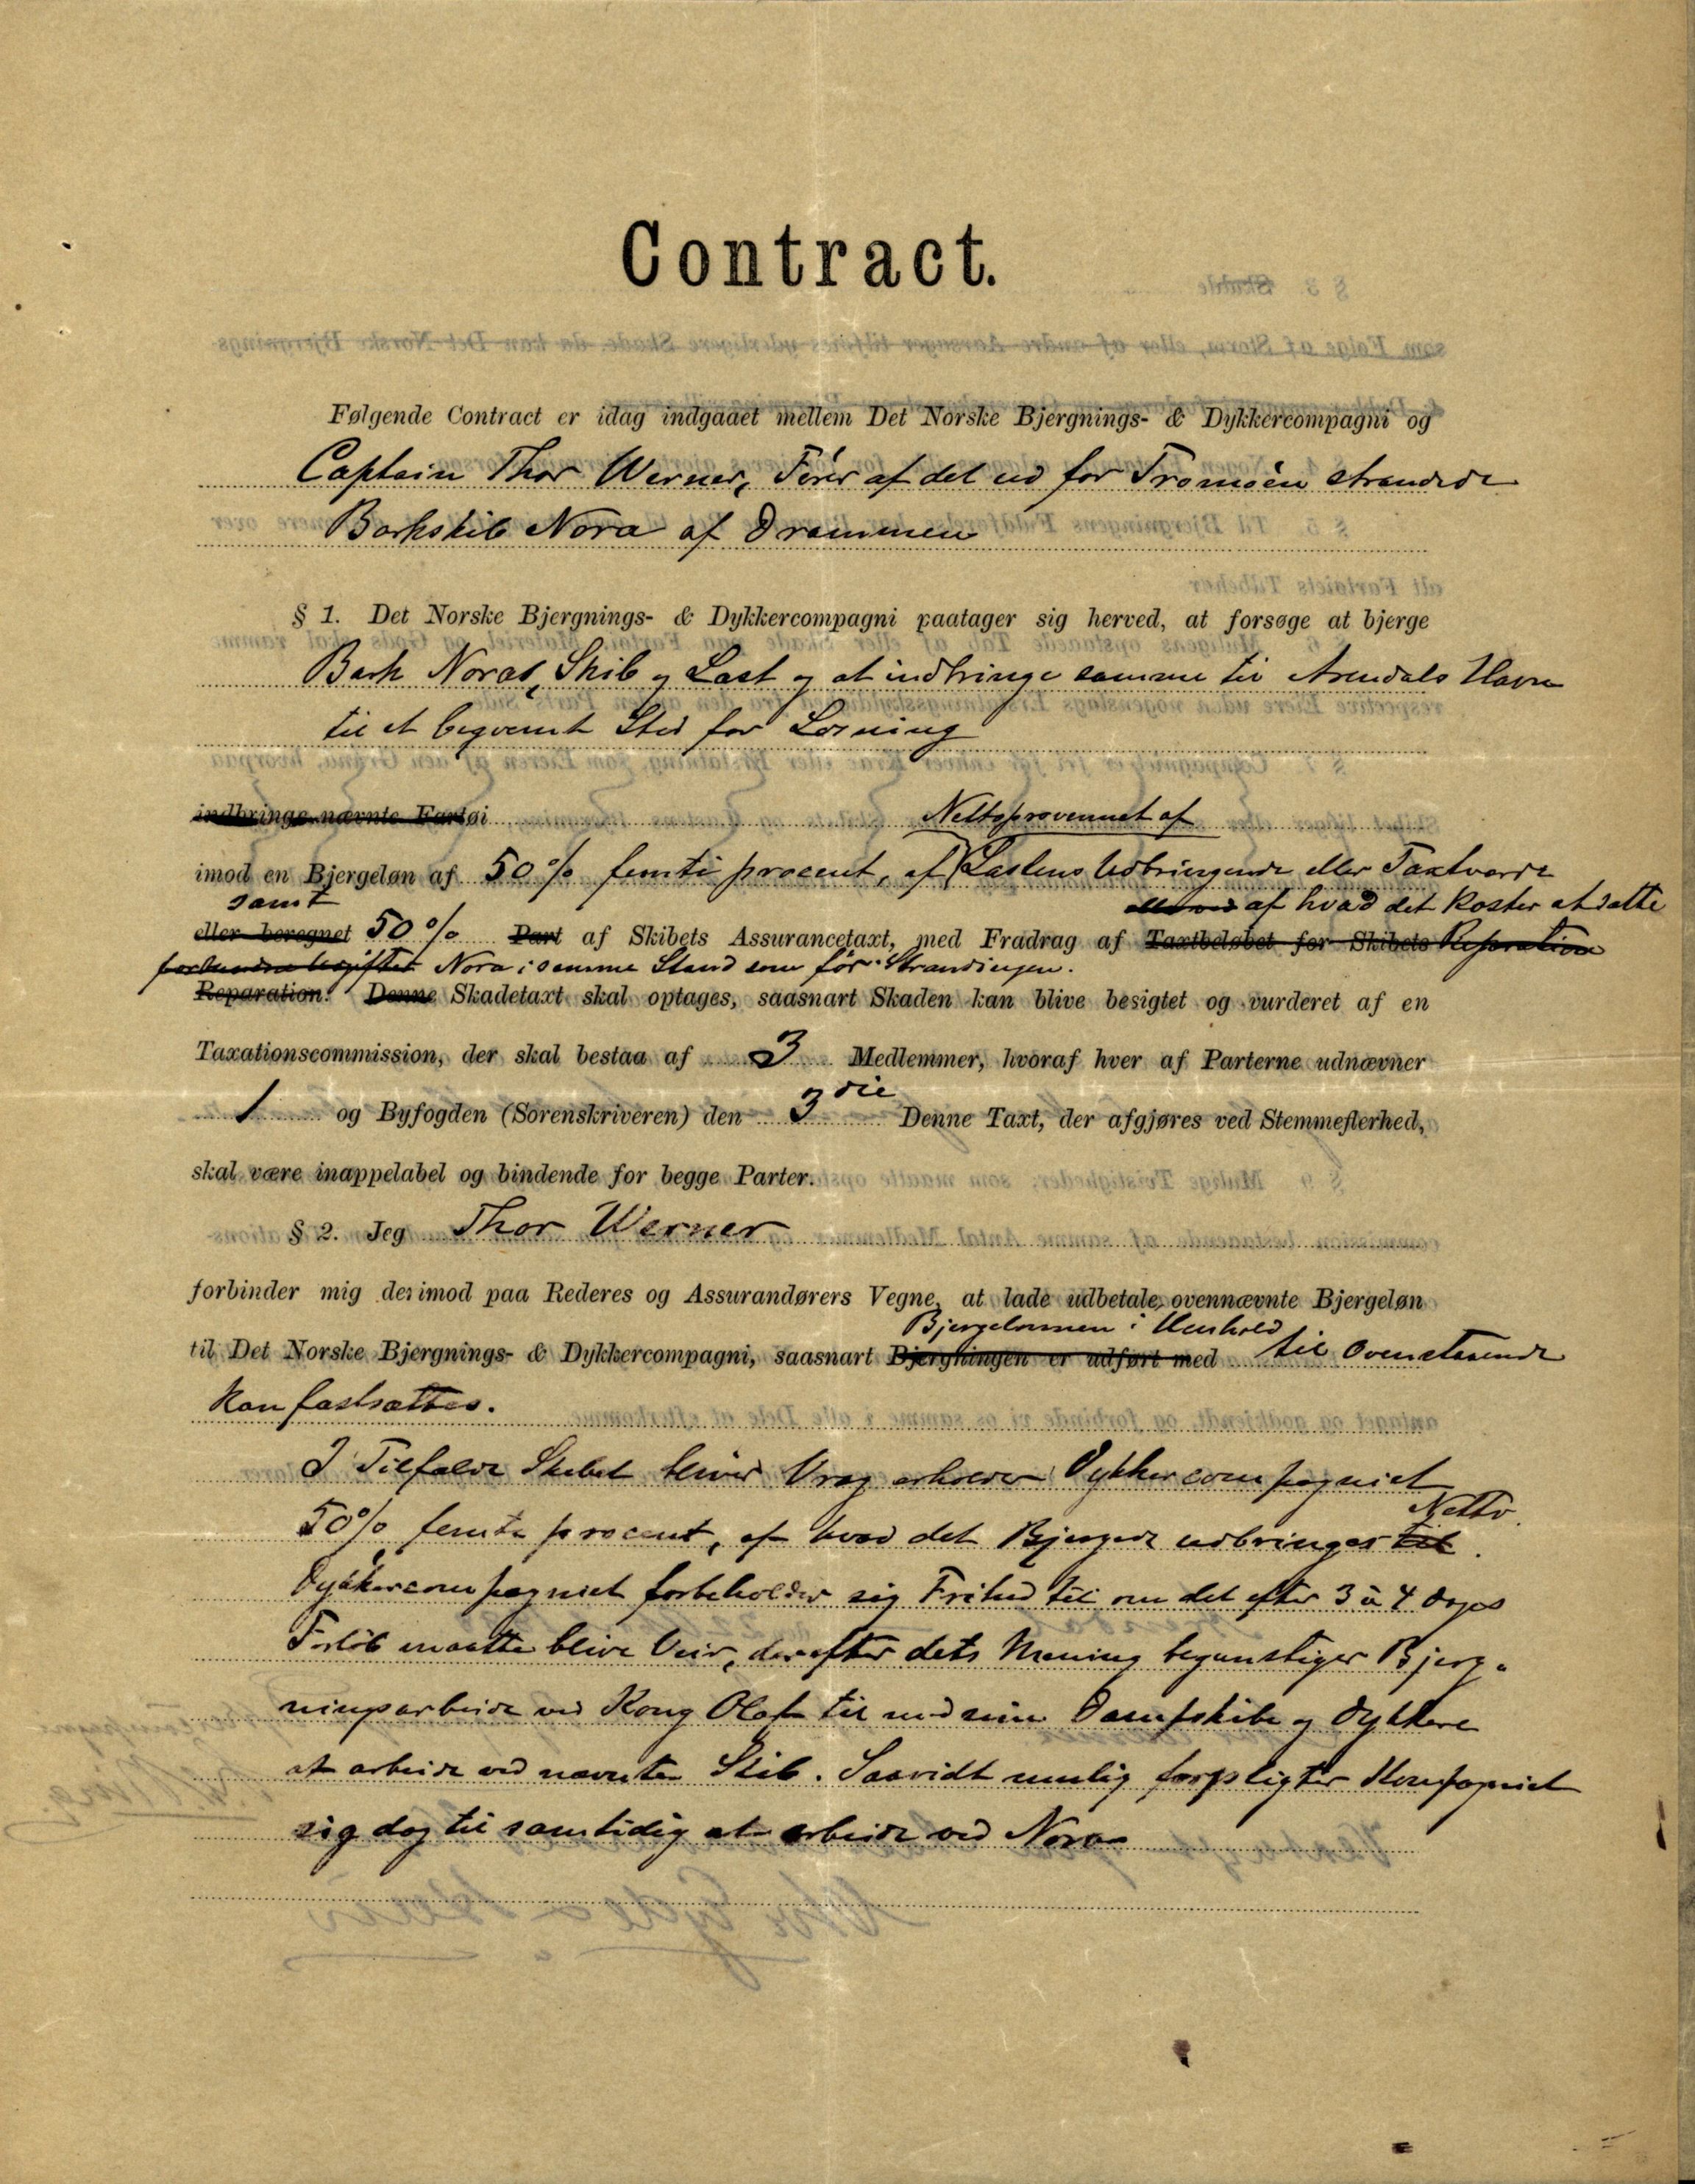 Contract.
Følgende Contract er idag indgaaet mellem Det Norske Bjergnings- & Dykkercompagni og
Captein Thor Werner, Fører af det ud for Tromöen strandede
Barkskib Nora af Drammen
§ 1. Det Norske Bjergnings- & Dykkercompagni paatager sig herved, at forsøge at bjerge
Bark Noras, Skib og Last og at indbringe samme til Arendals Havn
til et beqvemt Sted for Losning
indbringe nævnte Fartøi
Nettoprovenuet af
imod en Bjergeløn af 50% femti procent, af Lastens Udbringende eller Taxtværdi
samt
af hvad det koster at sætte
eller beregnet 50% Part af Skibets Assurancetaxt, med Fradrag af Taxtbeløbet for Skibets Reparation
Nora i samme Stand som før Strandingen.
Reparation. Denne Skadetaxt skal optages, saasnart Skaden kan blive besigtet og vurderet af en
Taxationscommission, der skal bestaa af 3 Medlemmer, hvoraf hver af Parterne udnævner
1 og Byfogden (Sorenskriveren) den 3die Denne Taxt, der afgjøres ved Stemmeflerhed,
skal være inappelabel og bindende for begge Parter.
§ 2. Jeg Thor Werner
forbinder mig derimod paa Rederes og Assurandørers Vegne, at lade udbetale ovennævnte Bjergeløn
Bjergelønnen i Henhold
til Det Norske Bjergnings- & Dykkercompagni, saasnart Bjergningen er udført med til Ovenstaaende
kan fastsættes.
I Tilfælde Skibet bliver Vrag erholder Dykkercompagniet
Netto
50% femti procent, af hvad det Bjergede udbringes til.
Dykkercompagniet forbeholder sig Frihed til om det efter 3 à 4 Dages
Forløb maatte blive Veir, der efter dets Mening begunstiger Bjerg-
ningsarbeide ved Kong Olaf til med sine Dampskibe og Dykkere
at arbeide ved nævnte Skib. Saavidt mulig forpligter Kompagniet
sig dog til samtidig at arbeide ved Nora